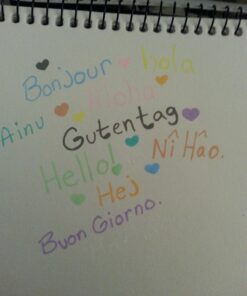 Bonjour hola
Aloha
Ainu
Gutentag
Nî Hâo.
Hello!
Hej
Buon Giorno.